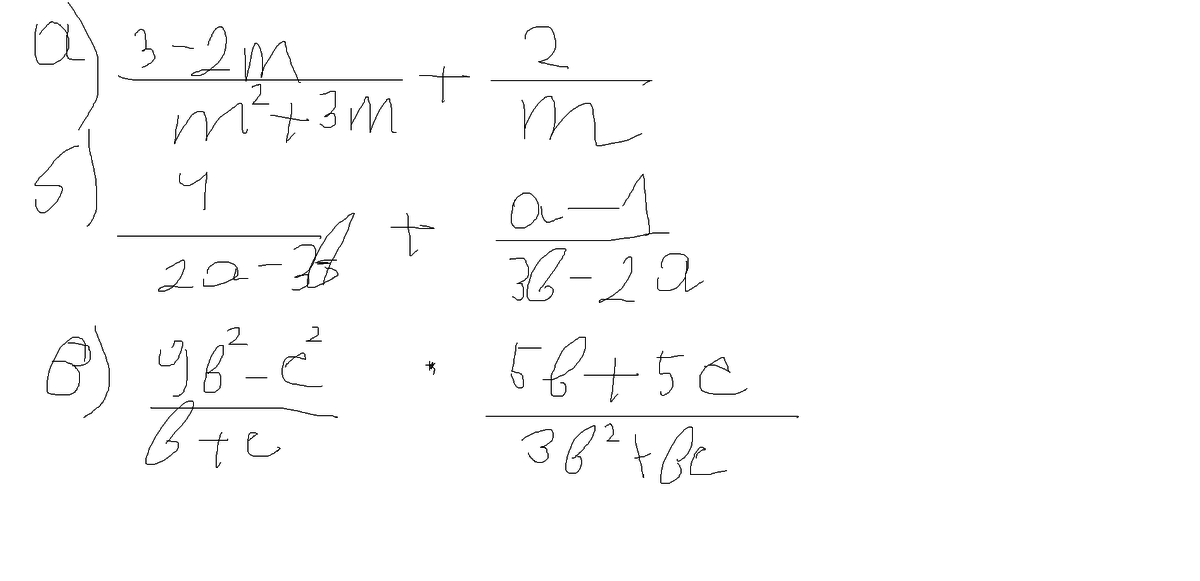 а) (3 - 2m)/(m² + 3m) + 2/m
б) 4/(2a - 3b) + (a - 1)/(3b - 2a)
в) (9b² - c²)/(b + c) * (5b + 5c)/(3b² + bc)